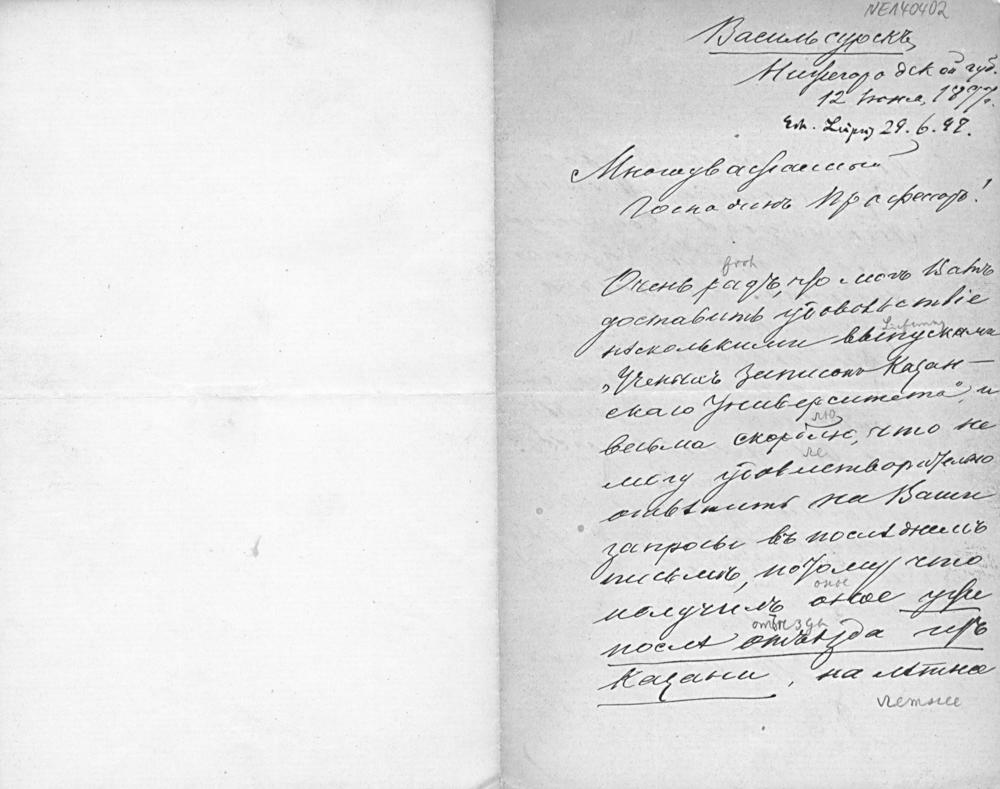 NE140402
Васильсурскъ
Нижегородской губ.
12 Июня, 1897г.
Erh. Leipzig 29.6.97.
Многоуважаемый
Господинъ Профессоръ!
froh
Очень радъ, что могъ Вамъ
доставить удовольствіе
нѣсколькими выпусками
„Ученыхъ Записокъ Казан-
скаго Университета", и
лю
весьма скорблю, что не
могу удовлетворительно
отвѣтить на Ваши
запросы въ послѣднемъ
письмѣ, потому что
оное
получилъ оное уже
отъѣзда
послѣ отъѣзда изъ
Казани, на лѣтнее
летнее